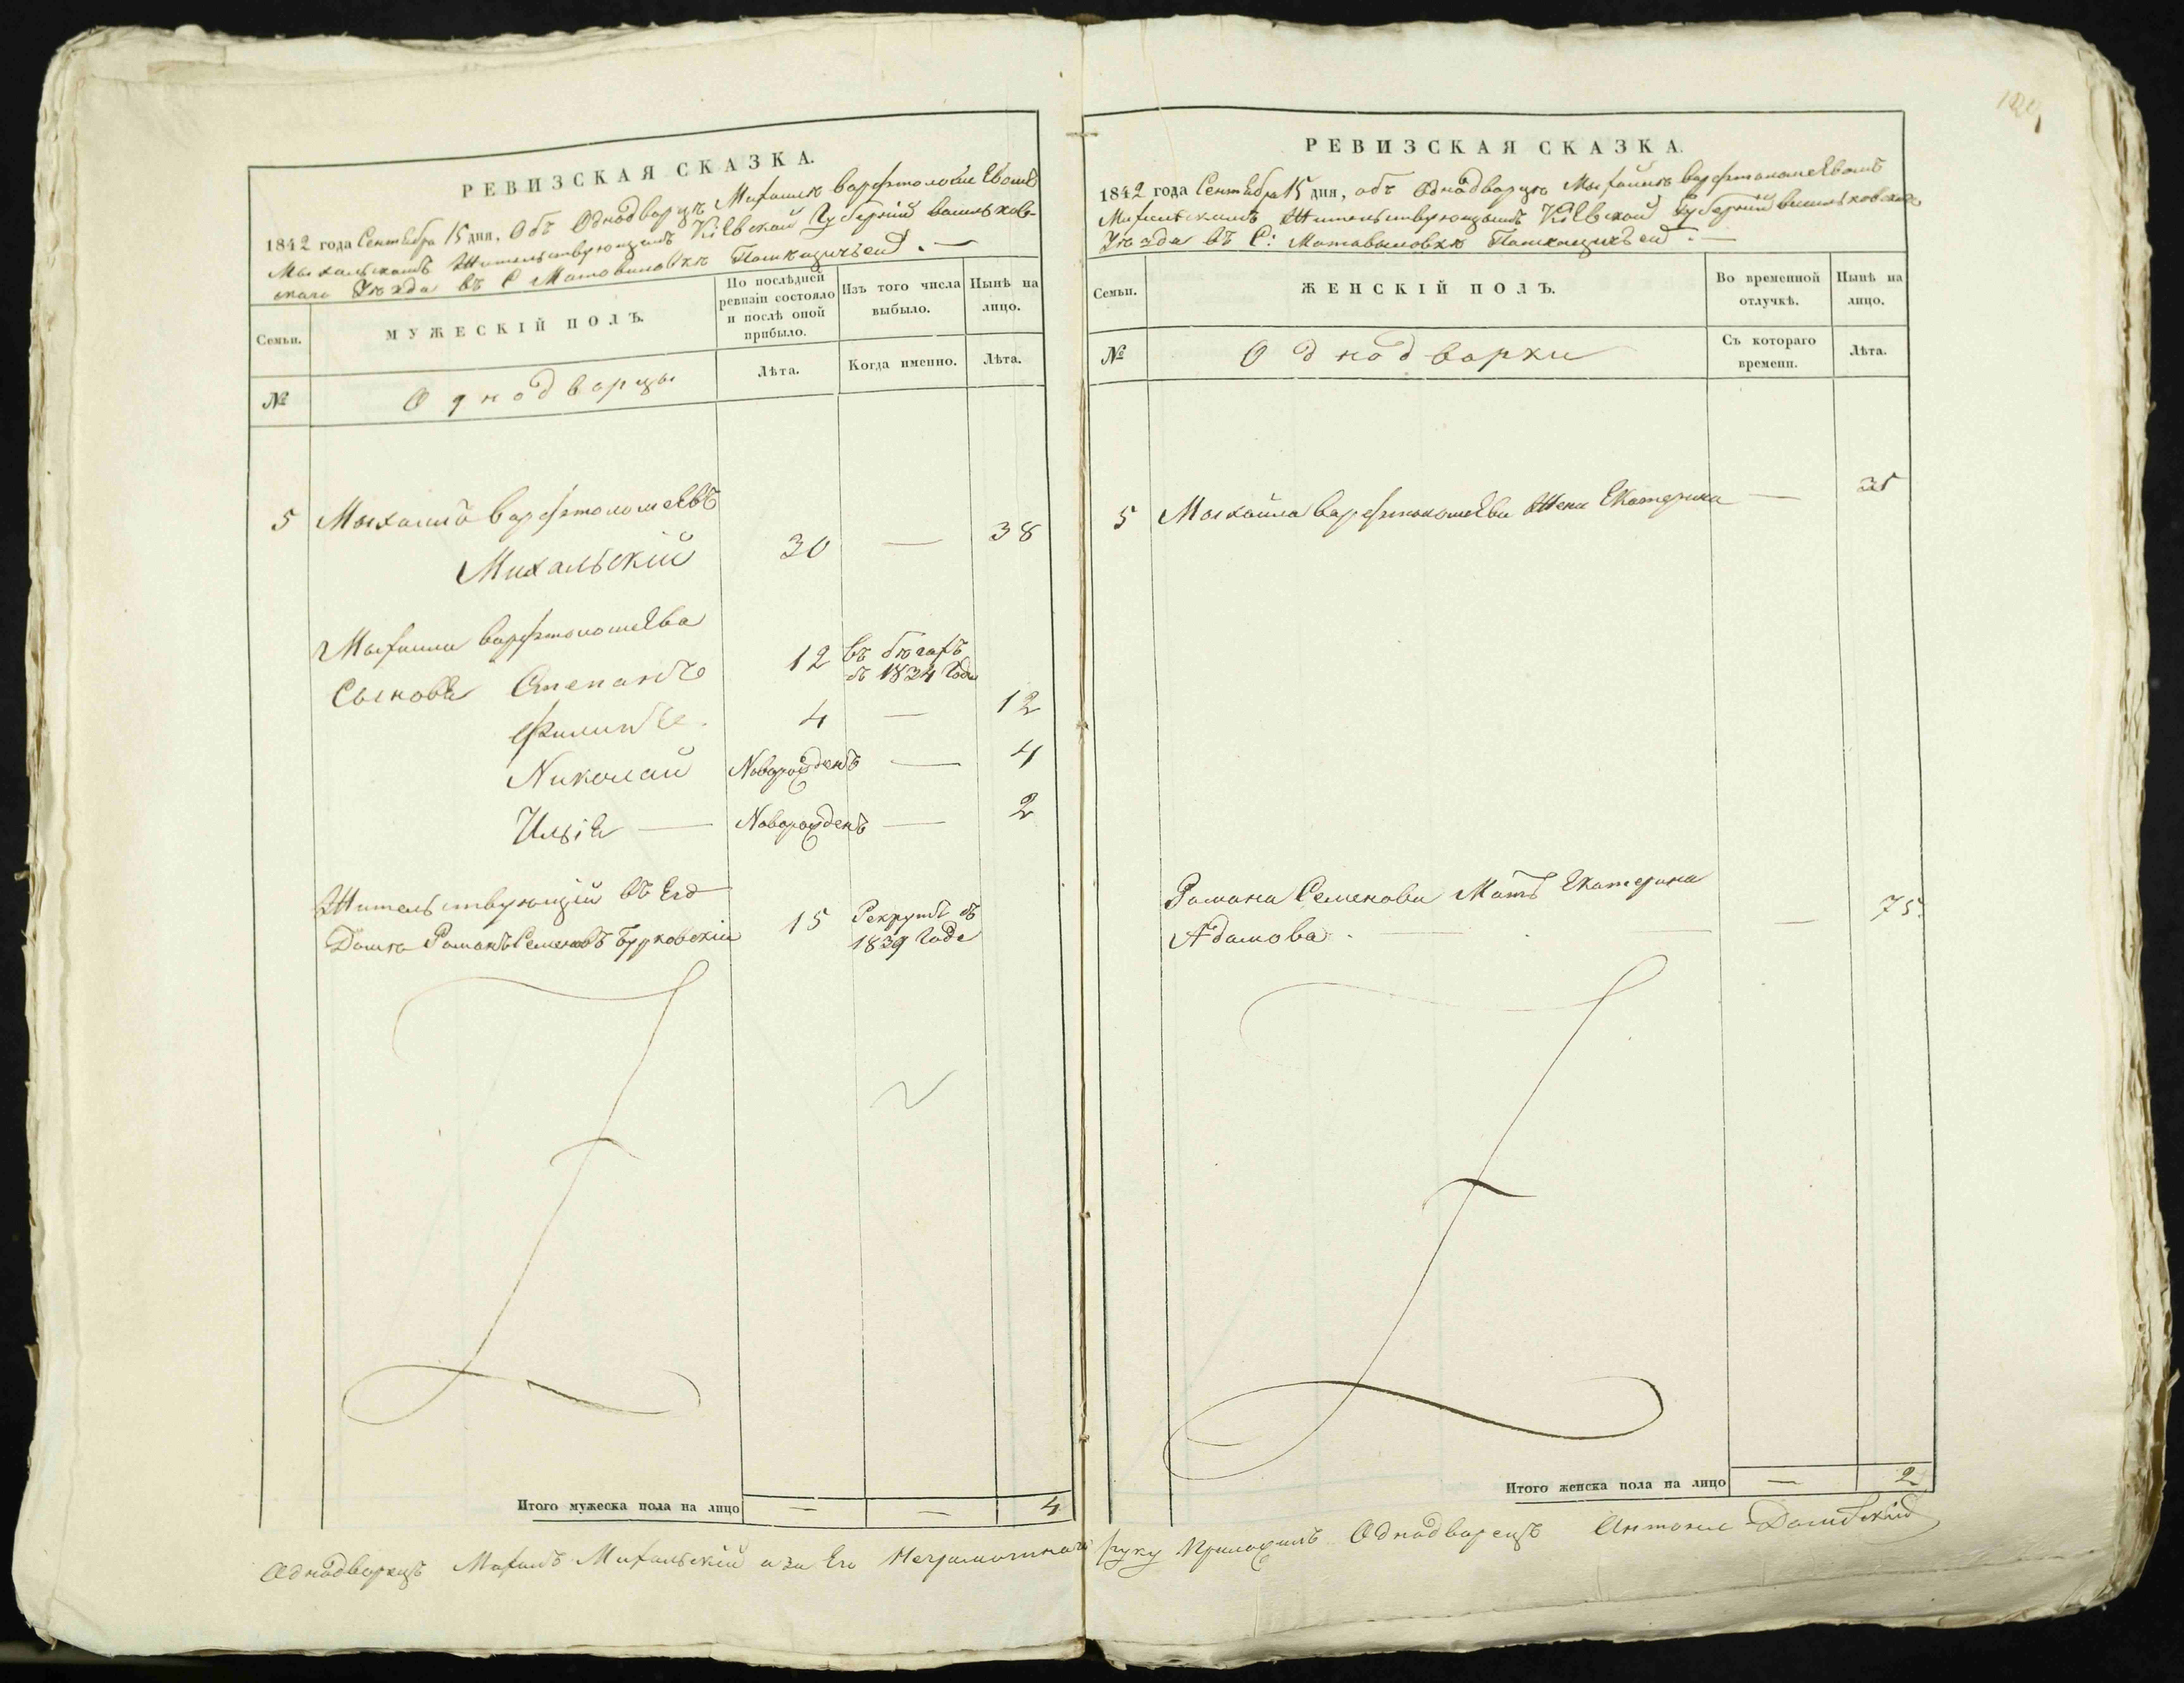 РЕВИЗСКАЯ СКАЗКА.
1842 года Сентября 15 дня, Объ Однодворцѣ Михаилѣ Варфтоломеевомъ
Михальскомъ Жительствующемъ Кіевской Губерніи Васильков-
скаго Уѣзда въ С Мотовиловкѣ
Семьи.
МУЖЕСКІЙ ПОЛЪ.
По послѣдней ревизіи состояло и послѣ оной прибыло.
Изъ того числа выбыло.
Нынѣ на лицо.
№
Однодворцы
Лѣта.
Когда именно.
Лѣта.
5 Михаилъ Варфтоломеевъ
Михальскій 30 — 38
Михаила Варфтоломеева
Сыновья Степанъ 12 въ бѣгахъ
съ 1834 Года
Филипъ 4 — 12
Николай Новорожденъ — 4
Илья — Новорожденъ — 2
Жительствующій въ Его
Домѣ Романъ Семеновъ Бурковскій 15 Рекрутъ въ
1839 Годе
Итого мужеска пола на лицо — — 4
РЕВИЗСКАЯ СКАЗКА.
1842 года Сентября 15 дня, объ Однодворцѣ Михайлѣ Варфтоломеевомъ
Михальскомъ Жительствующемъ Кіевской Губерніи Васильковскаго
Уѣзда въ С: Мотовиловкѣ
Семьи.
ЖЕНСКІЙ ПОЛЪ.
Во временной отлучкѣ.
Нынѣ на лицо.
№
Однодворки
Съ котораго времени.
Лѣта.
5 Михайла Варфтоломеева Жена Екатерина — 35
Романа Семенова Мать Екатерина
Адамова — — 75
Итого женска пола на лицо — 2
Однодворецъ Михаилъ Михальскій а за Его Неграмотнаго руку Приложилъ Однодворецъ Антоній